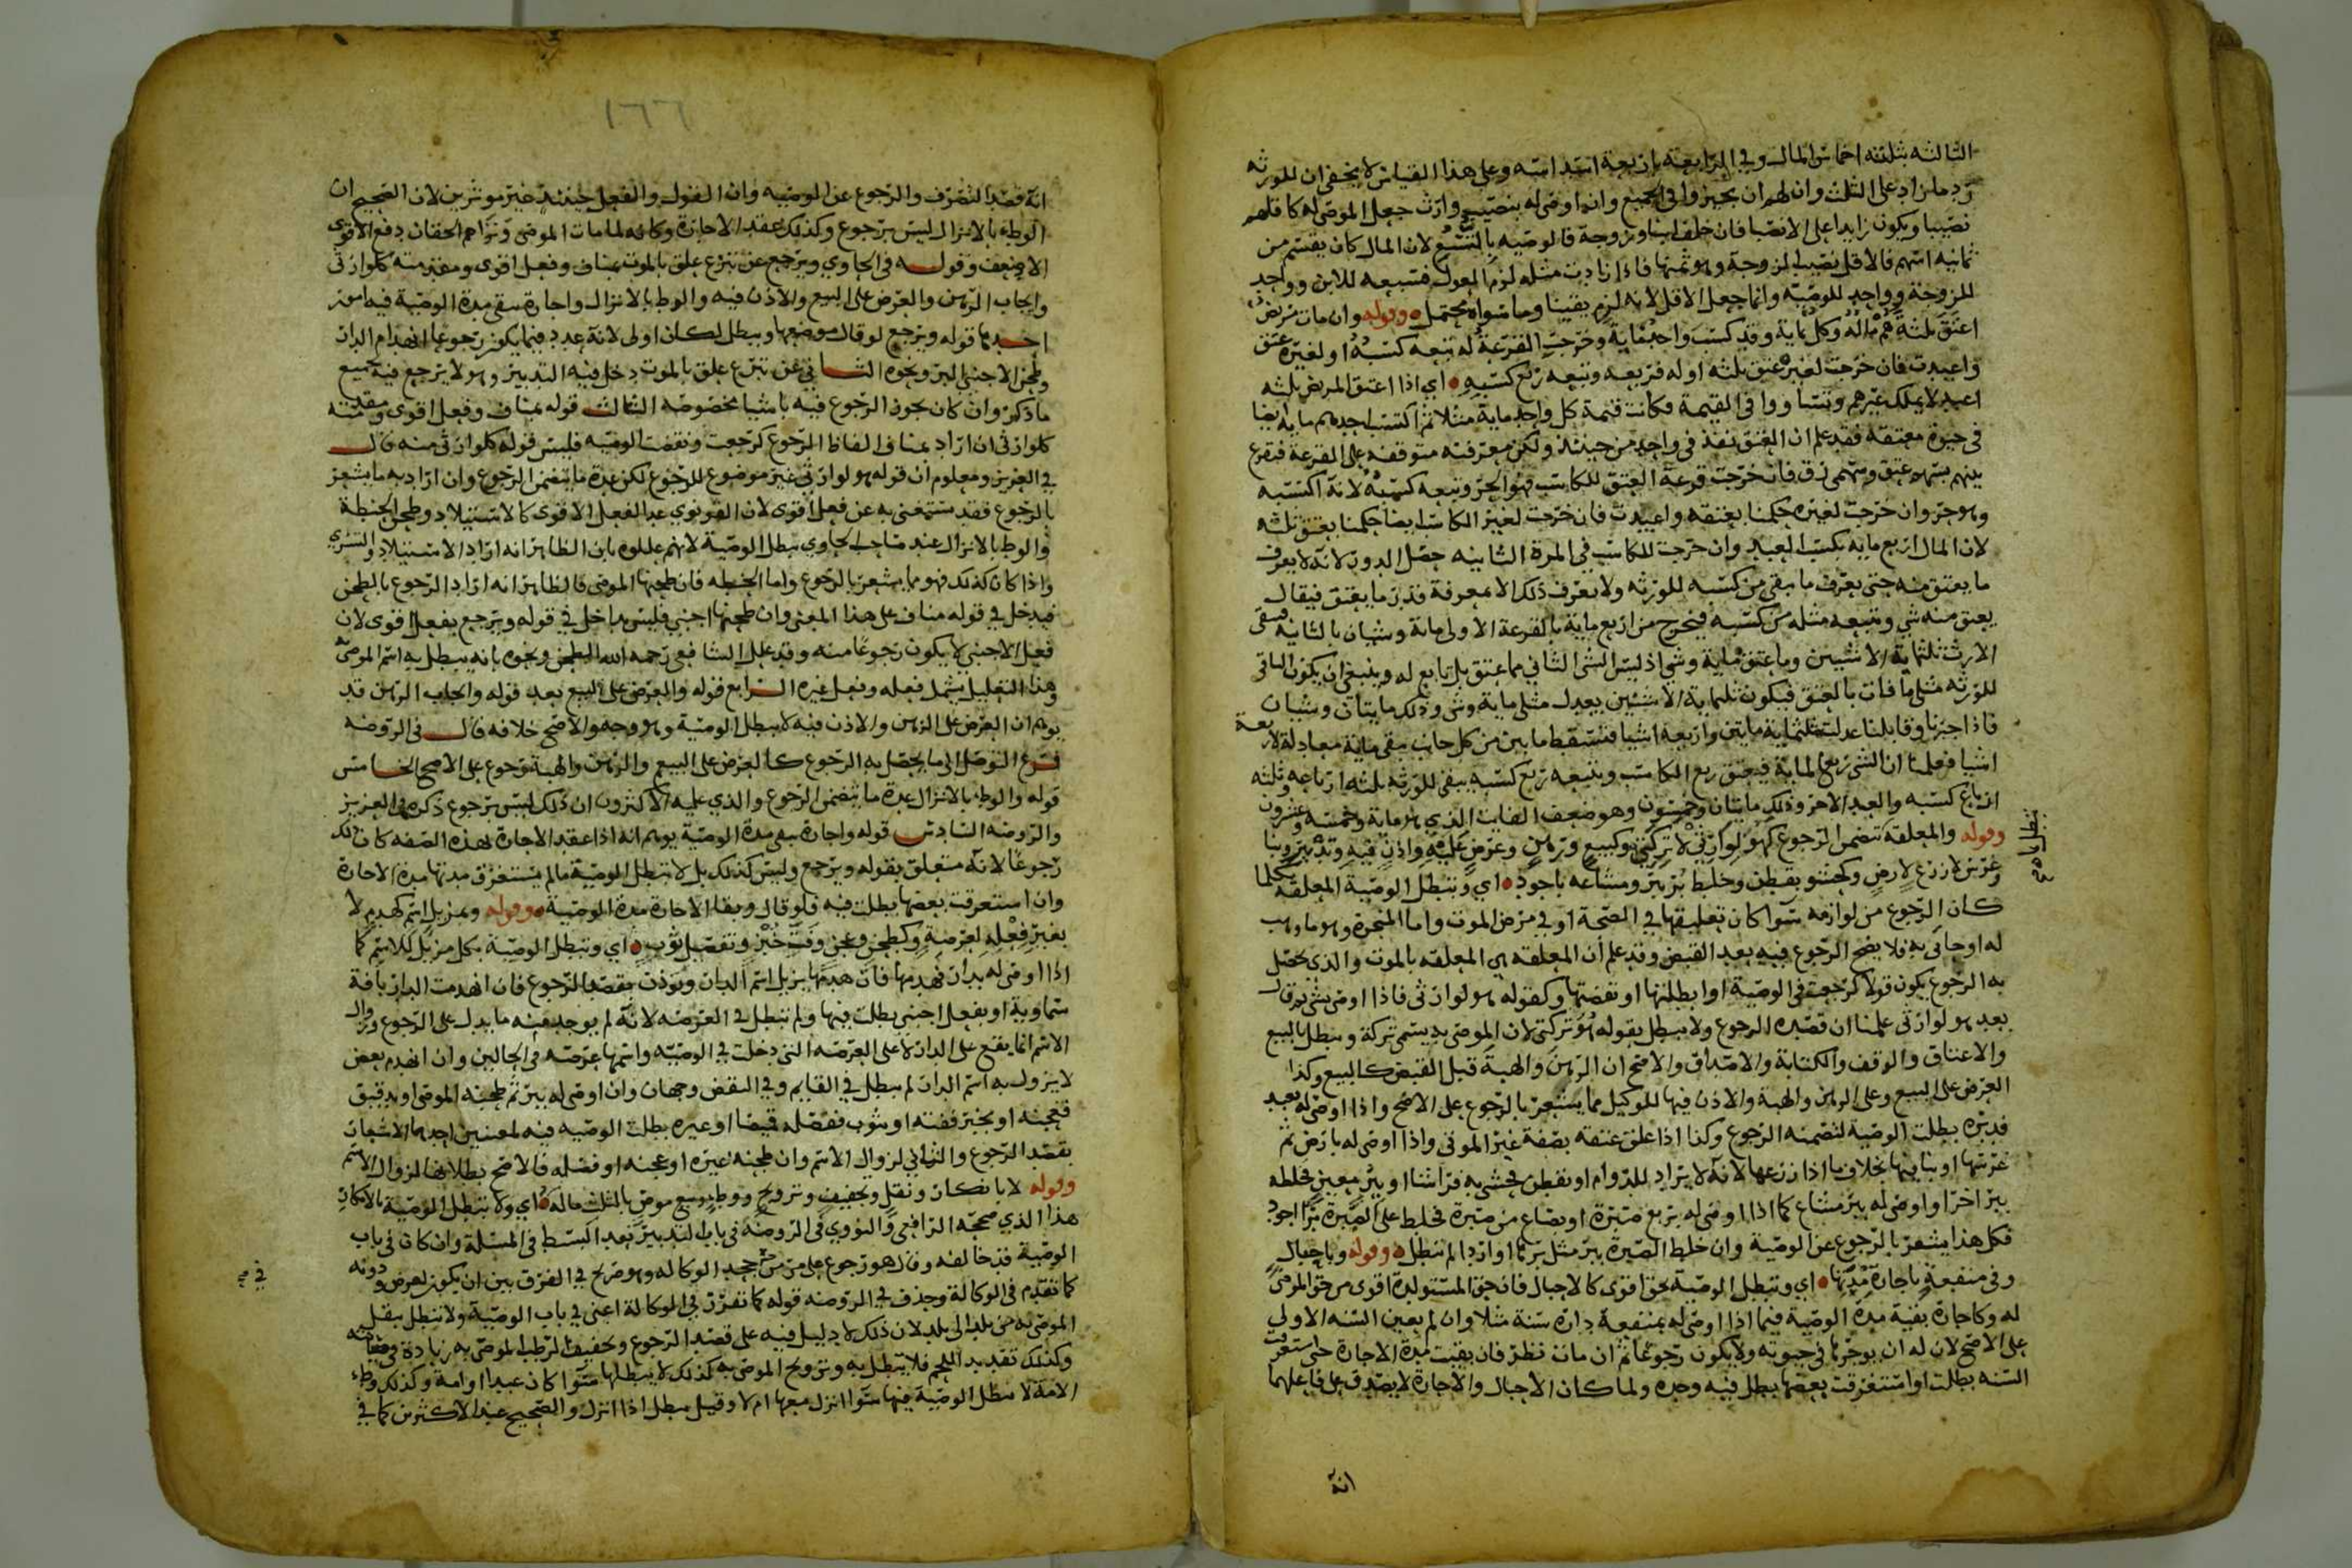 الثالثه بثلثه اخماس المال وفي الرابعه باربعة اسداسه وعلى هذا القياس لا يخفى ان للورثه
رد ما زاد على الثلث وان لهم ان يجيزوا في الجميع وانما اوصى له بنصيب وارث جعل الموصى له كاقلهم
نصيبا ويكون زايدا على الانصبا فان خلف ابنا وزوجة فالوصيه بالتسع لان المال كان يقسم من
ثمانيه اسهم فالاقل نصيب الزوجة وهو ثمنها فاذا زادت مثله لزم العول فسبعه للابن وواحد
للزوجة وواحد للوصيه وانما جعل الاقل لانه لزم يقينا وما سواه محتمل وقوله وان مات مريض
اعتق ثلثة هم ماله وكل ماية وقد كسب واحد ماية وخرجت القرعة له تبعه كسبه او لغيره عتق
واعيدت فان خرجت لغير عتق ثلثه او له فربعه وتبعه ربع كسبه اي اذا اعتق المريض ثلثه
اعبد لا يملك غيرهم وتساووا في القيمة فكانت قيمة كل واحد ماية مثلا ثم اكتسب احدهم ماية ايضا
في حيوة معتقه فقد علم ان العتق نفذ في واحد من حينئذ ولكن معرفته متوقفه على القرعة فنقرع
بينهم بسهم عتق وسهمي رق فان خرجت قرعة العتق للكاسب فهو الحر وتبعه كسبه لانه اكتسبه
وهو حر وان خرجت لغيره حكمنا بعتقه واعيدت فان خرجت لغير الكاسب ايضا حكمنا بعتق ثلثه
لان المال اربع مايه بكسب العبد وان خرجت للكاسب في المرة الثانيه حصل الدور لانه لا يعرف
ما يعتق منه حتى يعرف ما يبقى من كسبه للورثه ولا يعرف ذلك الا بمعرفة قدر ما يعتق فيقال
يعتق منه شي وتبعه مثله من كسبه فيخرج من اربع ماية بالقرعة الاولى ماية وشيان بالثانية فيبقى
الارث ثلثماية الا شيين وما عتق ماية وشي اذ ليس الشي الثاني مما عتق بل تابع له وينبغي ان يكون الباقي
للورثه مثلي ما فات بالعتق فيكون ثلثماية الا شيين يعدل مثلي ماية وشي وذلك مايتان وشيان
فاذا جبرنا وقابلنا عدلت ثلثماية مايتين واربعة اشيا فنسقط مايتين من كل جانب يبقى ماية معادلة لاربعة
اشيا فعلمنا ان الشي ربع الماية فيعتق ربع الكاسب ويتبعه ربع كسبه يبقى للورثه ثلثه ارباعه وثلثه
ارباع كسبه والعبد الاخر وذلك مايتان وخمسون وهو ضعف الفايت الذي هو ماية وخمسه وعشرون
وقوله والمعلقه تتضمن الرجوع كهو لوارثي لا تركتي وكبيع ورهن وعرض عليه واذن فيه وتدبير وبنا
وغرس لا زرع لارض وكحشو بقطن وخلط بر ببر ومشاعه باجود اي وتبطل الوصية المعلقه بكلما
كان الرجوع من لوازمه سوا كان تعليقها في الصحة او في مرض الموت واما المنجزة وهو ما وهب
له او حابى به فلا يصح الرجوع فيه بعد القبض وقد علم أن المعلقه هي المعلقه بالموت والذي يحصل
به الرجوع يكون قولا كرجعت في الوصية او ابطلتها او نقضتها وكقوله هو لوارثي فاذا اوصى بشي ثم قال
بعد هو لوارثي علمنا ان قصده الرجوع ولا يبطل بقوله هو تركتي لان الموصى به يسمى تركة وتبطل بالبيع
والاعتاق والوقف والكتابة والاصداق والاصح ان الرهن والهبة قبل القبض كالبيع وكذا
العرض على البيع وعلى الرهن والهبة والاذن فيها للوكيل مما يشعر بالرجوع على الاصح واذا اوصى له بعبد
فدبره بطلت الوصية لتضمنه الرجوع وكذا اذا علق عتقه بصفة غير الموت واذا اوصى له بارض ثم
غرسها او بنا فيها بخلاف ما اذا زرعها لانه لا يراد للدوام او بقطن فحشى به فراشا او ببر معين فخلطه
ببر اخر او اوصى له ببر مشاع كما اذا اوصى له بربع صبرة او بصاع من صبرة فخلط على الصبرة برا اجود
فكل هذا يشعر بالرجوع عن الوصية وان خلط الصبرة ببر مثل برها او اردا لم تبطل وقوله وباحبال
وفي منفعة باجارة مدتها اي وتبطل الوصية بحق اقوى كالاحبال فان حق المستولدة اقوى من حق الموصى
له وكاجارة بقية مدة الوصية فيما اذا اوصى له بمنفعة داره سنة مثلا وان لم يعين السنه الاولى
على الاصح لان له ان يوجرها في حيوته ولا يكون رجوعا ثم ان مات نظر فان بقيت مدة الاجارة حتى استغرقت
السنه بطلت او استغرقت بعضها يبطل فيه وحده ولما كان الاحبال والاجارة لا يصدق على فاعلهما
انه
١٦٦
انه قصد التصرف والرجوع عن الوصيه وان القول والفعل حينئذ غير موثرين لان الصحيح ان
الوطء بالانزال ليس برجوع وكذلك عقد الاجارة وكانه لما مات الموصي وتزاحم الحقان دفع الاقوى
الاضعف وقوله في الحاوي ويرجع عن تبرع علق بالموت بمناف وفعل اقوى ومقدمته كلوارثي
وايجاب الرهن والعرض على البيع والاذن فيه والوط بالانزال واجارة سقى مدة الوصية فيه امور
احدها قوله ويرجع لو قال موضعها ويبطل لكان اولى لانه عدد فيما يكون رجوعا انهدام الدار
وطحن الاجنبي البر ونحوه الثاني عن تبرع علق بالموت دخل فيه التدبير وهو لا يرجع فيه بجميع
ما ذكر وان كان يجوز الرجوع فيه باشيا مخصوصه الثالث قوله بمناف وفعل اقوى ومقدمته
كلوارثي ان اراد بمناف الفاظ الرجوع كرجعت ونقضت الوصيه فليس قوله كلوارثي منه قال
في العزيز ومعلوم ان قوله هو لوارثي غير موضوع للرجوع لكن عدة ما يتضمن الرجوع وان اراد به ما يشعر
بالرجوع فقد يستغنى به عن فعل اقوى لان القونوي عد الفعل الاقوى كالاستيلاد وطحن الحنطة
والوط بالانزال عند صاحب الحاوي يبطل الوصية لانهم عللوه بان الظاهر انه اراد الاستيلاد والتسري
واذا كان كذلك فهو مما يشعر بالرجوع واما الحنطه فان طحنها الموصي فالظاهر انه اراد الرجوع بالطحن
فيدخل في قوله مناف على هذا المعنى وان طحنها اجنبي فليس بداخل في قوله ويرجع بفعل اقوى لان
فعل الاجنبي لا يكون رجوعا منه وقد علل الشافعي رحمه الله الطحن ونحوه بانه يبطل به اسم الموصى به
وهذا التعليل يشمل فعله وفعل غيره الرابع قوله والعرض على البيع بعد قوله وايجاب الرهن قد
يوهم ان العرض على الرهن والاذن فيه لا يبطل الوصية وهو وجه والاصح خلافه قال في الروضه
فرع التوصل الى ما يحصل به الرجوع كالعرض على البيع والرهن والهبة رجوع على الاصح الخامس
قوله والوطء بالانزال عدة ما يتضمن الرجوع والذي عليه الاكثرون ان ذلك ليس برجوع ذكره في العزيز
والروضه السادس قوله واجارة سقى مدة الوصية يوهم انه اذا عقد الاجارة لهذه الصفه كان ذلك
رجوعا لانه متعلق بقوله ويرجع وليس كذلك بل لا تبطل الوصية ما لم يستغرق مدتها مدة الاجارة
وان استغرقت بعضها بطلت فيه فلو قال وبقا الاجارة مدة الوصية وقوله وبمزيل اسم كهدم لا
بغير فعله لعرصة وكطحن وعجن وفت خبز وتفصيل ثوب اي وتبطل الوصية بكل مزيل للاسم كما
اذا اوصى له بدار فهدمها فان هدمها يزيل اسم الدار ويوذن بقصد الرجوع فان انهدمت الدار بافة
سماوية او بفعل اجنبي بطلت فيها ولم تبطل في العرصه لانه لم يوجد منه ما يدل على الرجوع وزوال
الاسم انما يقع على الدار لا على العرصه التي دخلت في الوصيه واسمها عرصه في الحالين وان انهدم بعض
لا يزول به اسم الدار لم يبطل في القايم وفي النقض وجهان وان اوصى له ببر ثم طحنه الموصي او بدقيق
فعجنه او بخبز ففته او بثوب ففصله قميصا او غيره بطلت الوصيه فيه لمعنيين احدهما الاشعار
بقصد الرجوع والثاني لزوال الاسم وان طحنه غيره او عجنه او فصله فالاصح بطلانها لزوال الاسم
وقوله لا بانكار ونقل وتجفيف وتزويج ووطء وبيع موص بالثلث ماله اي ولا تبطل الوصية بالانكار
هذا الذي صححه الرافعي والنووي في الروضه في باب التدبير بعد البسط في المسئلة وان كان في باب
الوصية قد خالفه وقال هو رجوع على ما مر من جحد الوكاله وهو صريح في الفرق بين ان يكون لغرض ودونه
كما تقدم في الوكالة وحذف في الروضه قوله كما تقرر في الوكالة اعني في باب الوصية ولا تبطل بنقل
الموصى به من بلد الى بلد لان ذلك لا دليل فيه على قصد الرجوع وتجفيف الرطب الموصى به زيادة في
وكذلك تقديد اللحم فلا يبطل به وتزويج الموصى به كذلك لا يبطلها سوا كان عبدا او امة وكذلك وطء
الامة لا يبطل الوصية فيها سوا انزل معها ام لا وقيل يبطل اذا انزل والصحيح عند الاكثرين كما في